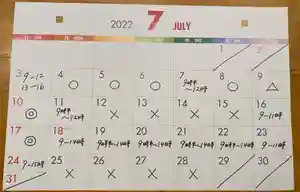 2022 7 JULY
1 2
3 4 5 6 7 8 9
9-12 ○ ○ ○ 9時半 ○ △
13-16 ~12時
10 11 12 13 14 15 16
◎ 9時半 × × × × 9-11時
~12時
17 18 19 20 21 22 23
◎ 9-14時 9時半-14時 9時半-14時 9時半-14時 9時半-14時 9-11時
24 9-15時 25 26 27 28 29 30
31 × × × ×